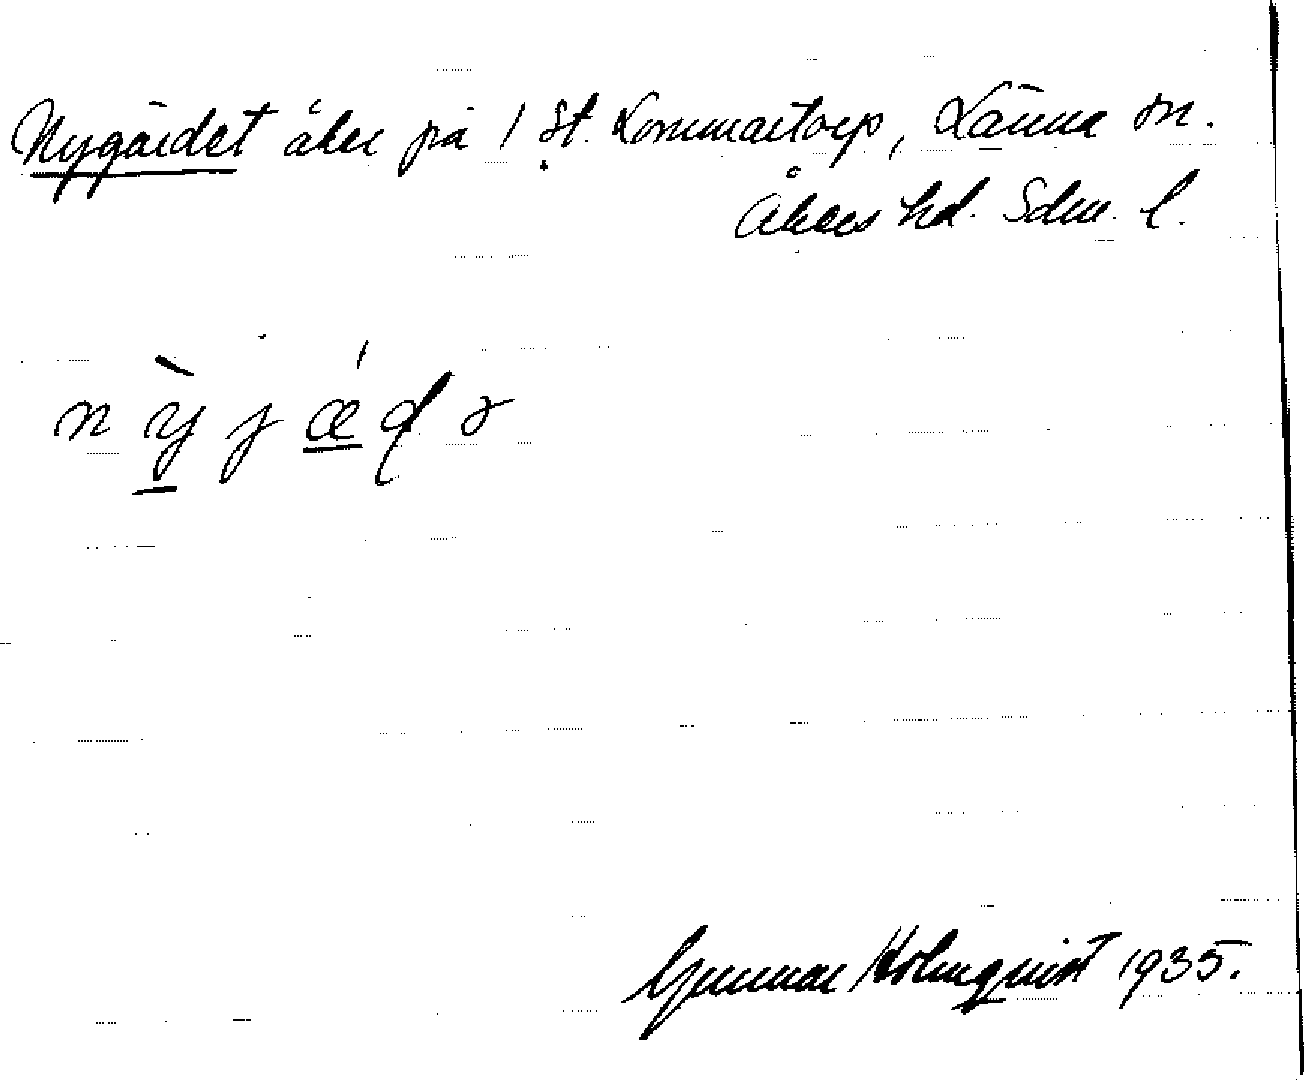 Nygärdet åker på 1 St. Lommartorp, Länna sn.
Åkers hd. Sdm. l.
nỳjǽdə
Gunnar Holmquist 1935.